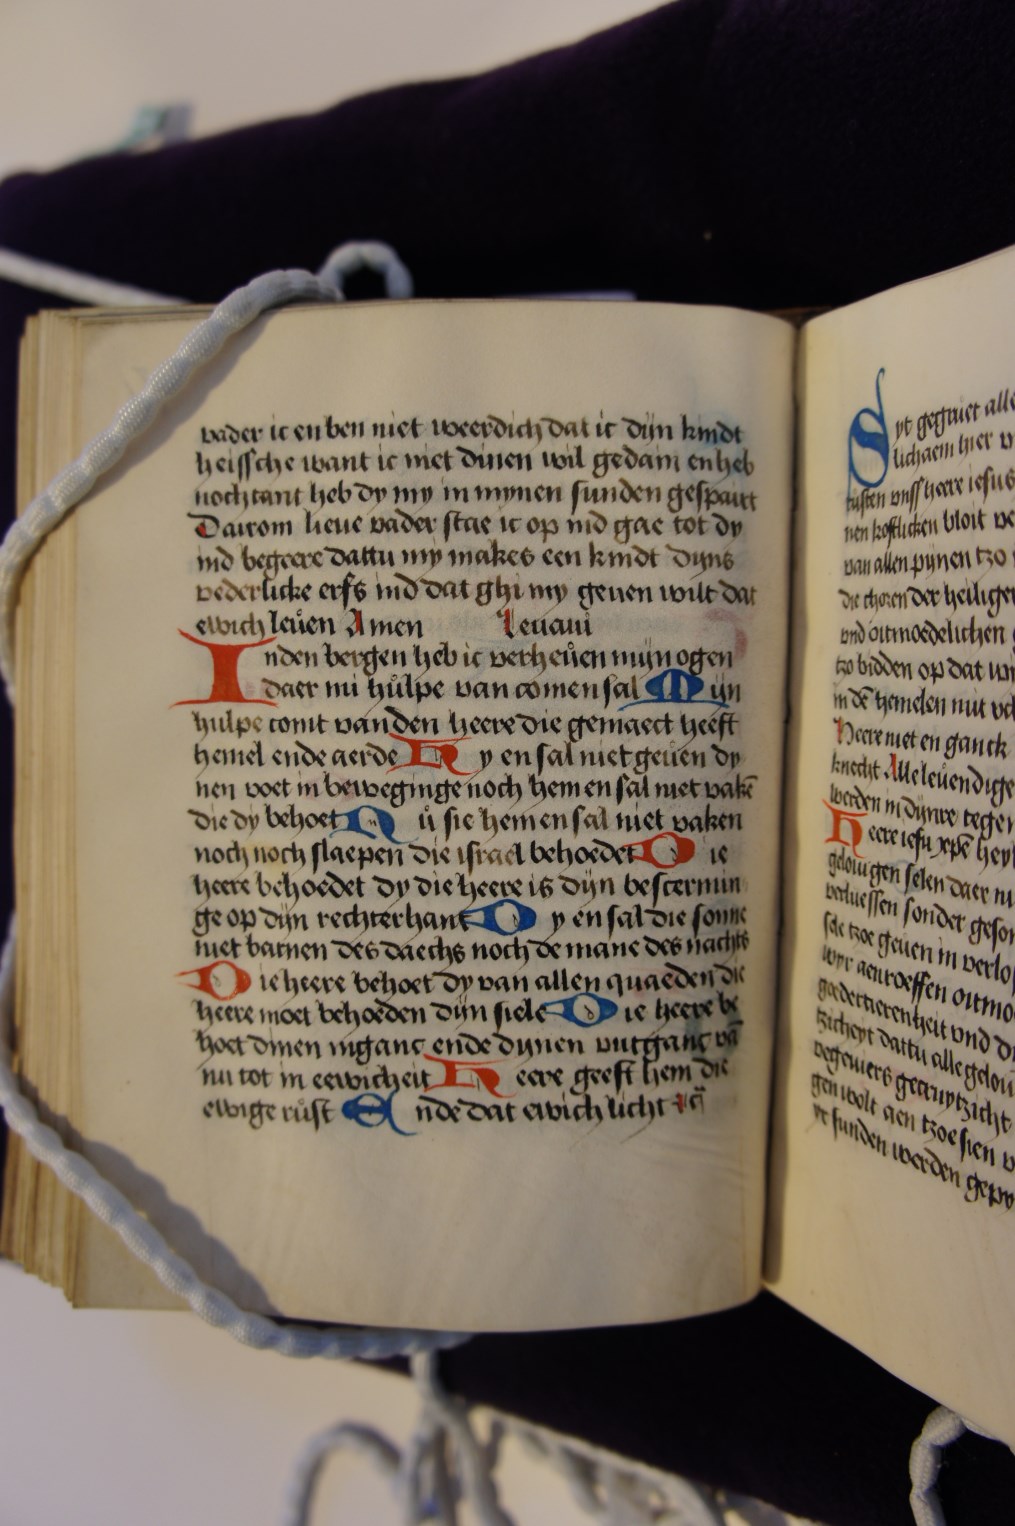 vader ic en ben niet weerdich dat ic dijn kindt
heissche want ic met dinen wil gedam en heb
nochtant heb dy my in mynen sunden gespairt
Dairom lieue vader stae ic op ind gae tot dy
ind begeere dattu my makes een kindt dijns
vederlicke erfs ind dat ghi my geuen wilt dat
ewich leuen Amen Leuaui
Inden bergen heb ic verheuen mijn ogen
daer mi hulpe van comen sal Mijn
hulpe comt van den heere die gemaect heeft
hemel ende aerde Hy en sal niet geuen dy
nen voet in beweginge noch hem en sal niet vakē
die dy behoet Nu sie hem en sal niet vaken
noch noch slaepen die israel behoedet Die
heere behoedet dy die heere is dijn bescermin
ge op dijn rechterhant Dy en sal die sonne
niet barnen des daechs noch de mane des nachts
Die heere behoet dy van allen quaeden die
heere moet behoeden dijn siele Die heere be
hoet dinen inganc ende dynen vutganc vā
nu tot in eewicheit Heere geeft hem die
ewige rust Ende dat ewich licht
Syt gegruet alle
lichaem hier
vnss heere iesus
nen kostlicken bloit
van allen pijnen tzo
die choren der heiligen
vnd oitmoedelichen
tzo bidden op dat
in dē hemelen mit
Heere niet en ganck
knecht Alle leuendige
werden in dynre tegen
Heere iesu xpē
gelouigen selen daer
sonder
tzoe geuen in verlos
wyr aenroeffen oitmo
goedertierenheit vnd
dattu alle gelou
getruytzicht
gen wolt aen tzoe sien
sunden werden